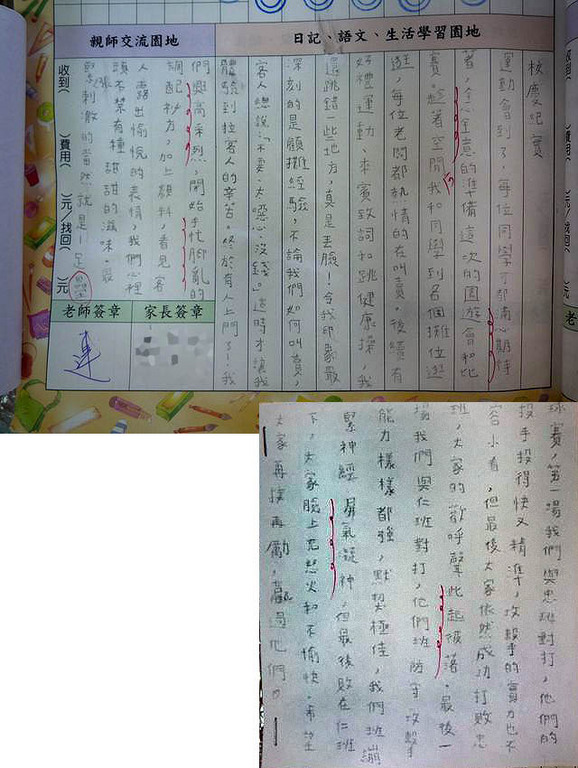 親師交流園地
日記、語文、生活學習園地
校慶紀實
運動會到了，每位同學都滿心期待
著，全心全意的準備這次的園遊會和比
賽。趁著空閒我和同學到各個攤位逛
逛，每位老闆都熱情的在叫賣。後續有
好禮運動、來賓致詞和跳健康操，我
還跳錯一些地方，真是丟臉！令我印象最
深刻的是顧攤經驗，不論我們如何叫賣，
客人總說：「不要、太噁心、沒錢。」這時才讓我
體驗到拉客人的辛苦。終於有人上門了！我
們興高采烈，開始手忙腳亂的
調配秒方，加上顏料，看見客
人露出愉悅的表情，我們心裡
頭不禁有種甜甜的滋味。最
緊張刺激的當然就是—足壘
收到(　)費用(　)元/找回(　)元
老師簽章
家長簽章
球賽，第一場我們與忠班對打，他們的
投手投得快又精準，攻擊手的實力也不
容小看，但最後大家依然成功打敗忠
班，大家的歡呼聲此起彼落。最後一
場我們與仁班對打，他們班防守、攻擊
能力樣樣都強，默契極佳，我們班繃
緊神經、屏氣凝神，但最後敗在仁班
下，大家臉上充怒火和不愉快。希望
大家再接再勵，贏過他們。